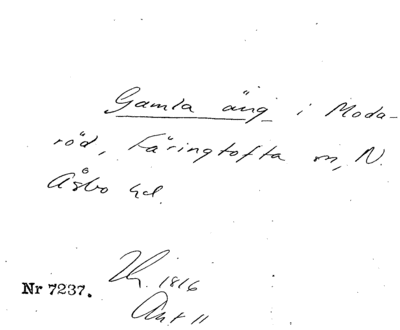 Gamla äng i Moda-
röd, Färingtofta sn, N.
Åsbo hd.
1816
Nr 7237.
Akt 11